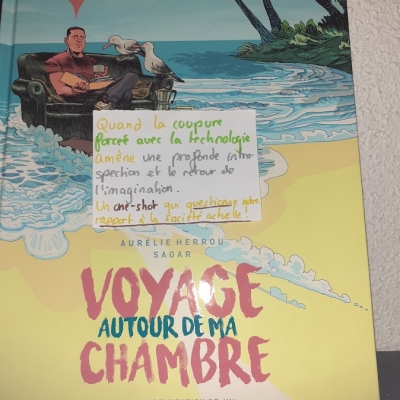 Quand la coupure
forcée avec la technologie
amène une profonde intro-
spection et le retour de
l'imagination.
Un one-shot qui questionne notre
rapport à la société actuelle!
AURÉLIE HERROU
SAGAR
VOYAGE
AUTOUR DE MA
CHAMBRE